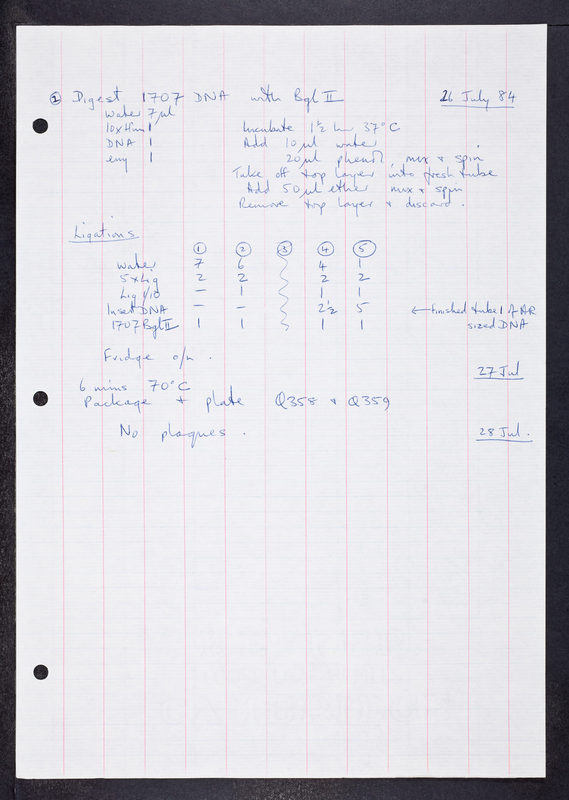 ① Digest 1707 DNA with Bgl II 26 July 84
Water 7µl
10xHin 1 Incubate 1½ hr 37°C
DNA 1 Add 10µl water
enz 1 20µl phenol, mix + spin
Take off top layer into fresh tube
Add 50µl ether mix + spin
Remove top layer + discard.
Ligations
① ② ③ ④ ⑤
Water 7 6 4 1
5xLig 2 2 2 2
Lig 1/10 – 1 1 1
Insert DNA – – 2½ 5 ← finished tube 1 of AR
1707 Bgl II 1 1 1 1 sized DNA
Fridge o/n.
27 Jul
6 mins 70°C
Package + plate Q358 + Q359
No plaques. 28 Jul.